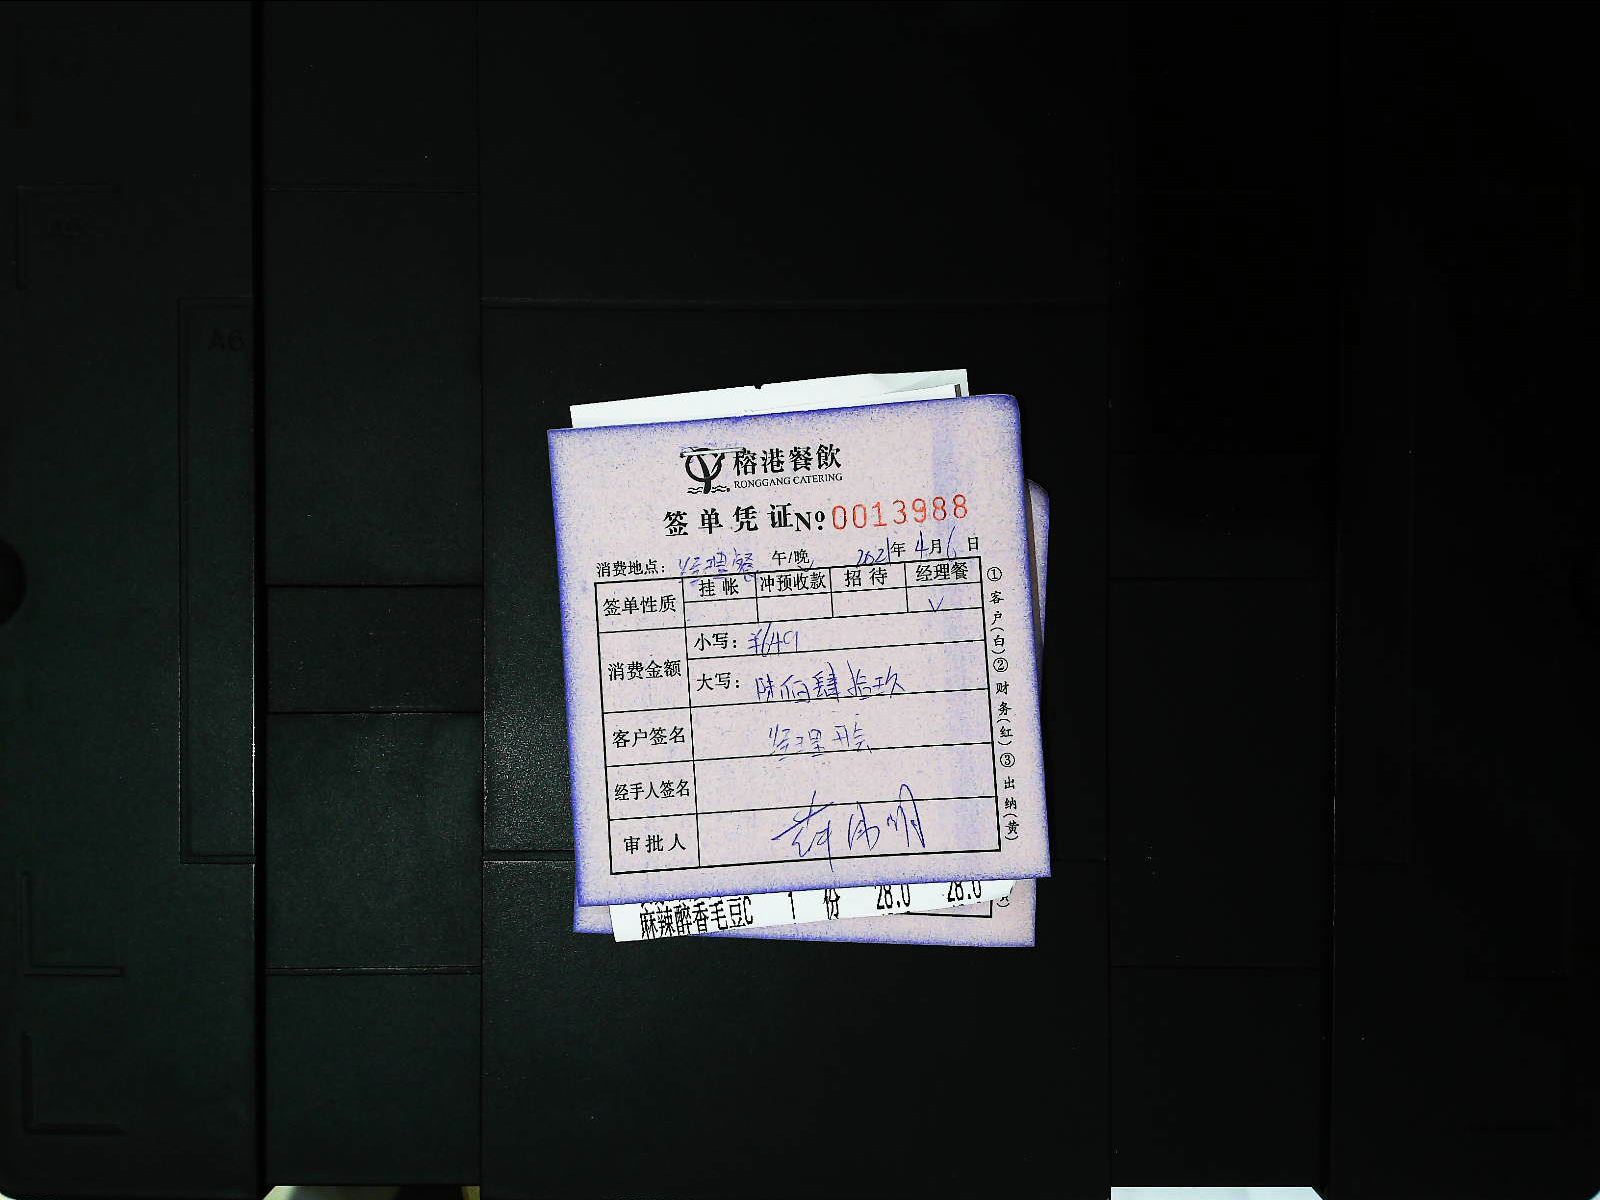 A6
榕港餐飲
RONGGANG CATERING
签单凭证 №0013988
消费地点：经理餐 午/晚 2021年4月6日
签单性质 挂帐 冲预收款 招待 经理餐
√
消费金额 小写：¥649
大写：陆佰肆拾玖
客户签名 经理开会
经手人签名
审批人
①客户(白)②财务(红)③出纳(黄)
麻辣醉香毛豆C 1 份 28.0 28.0